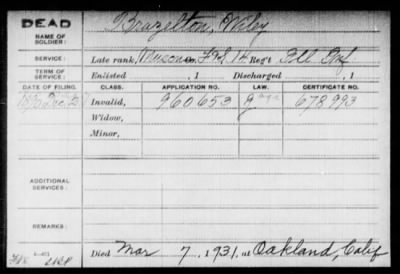 DEAD
NAME OF SOLDIER: Brazelton, Wiley
SERVICE: Late rank, Muscn F&S 14 Reg't Ill Inf
TERM OF SERVICE: Enlisted , 1 Discharged , 1
DATE OF FILING. CLASS. APPLICATION NO. LAW. CERTIFICATE NO.
Invalid, 960.653 678993
Widow,
Minor,
ADDITIONAL SERVICES:
REMARKS:
Died Mar 7, 1931, at Oakland, Calif